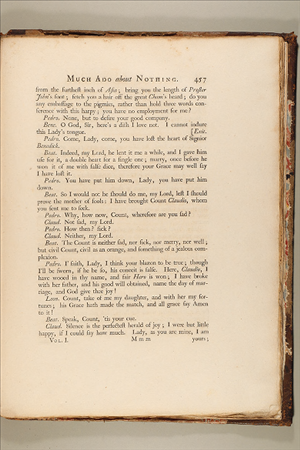 MUCH ADO about NOTHING. 457
from the furthest inch of Asia; bring you the length of Prester
John's foot; fetch you a hair off the great Cham's beard; do you
any embassage to the pigmies, rather than hold three words con-
ference with this harpy; you have no employment for me?
Pedro. None, but to desire your good company.
Bene. O God, Sir, here's a dish I love not. I cannot indure
this Lady's tongue. [Exit.
Pedro. Come, Lady, come, you have lost the heart of Signior
Benedick.
Beat. Indeed, my Lord, he lent it me a while, and I gave him
use for it, a double heart for a single one; marry, once before he
won it of me with false dice, therefore your Grace may well say
I have lost it.
Pedro. You have put him down, Lady, you have put him
down.
Beat. So I would not he should do me, my Lord, lest I should
prove the mother of fools: I have brought Count Claudio, whom
you sent me to seek.
Pedro. Why, how now, Count, wherefore are you sad?
Claud. Not sad, my Lord.
Pedro. How then? sick?
Claud. Neither, my Lord.
Beat. The Count is neither sad, nor sick, nor merry, nor well;
but civil Count, civil as an orange, and something of a jealous com-
plexion.
Pedro. I' faith, Lady, I think your blazon to be true; though
I'll be sworn, if he be so, his conceit is false. Here, Claudio, I
have wooed in thy name, and fair Hero is won; I have broke
with her father, and his good will obtained, name the day of mar-
riage, and God give thee joy!
Leon. Count, take of me my daughter, and with her my for-
tunes; his Grace hath made the match, and all grace say Amen
to it!
Beat. Speak, Count, 'tis your cue.
Claud. Silence is the perfectest herald of joy; I were but little
happy, if I could say how much. Lady, as you are mine, I am
VOL. I. M m m yours;